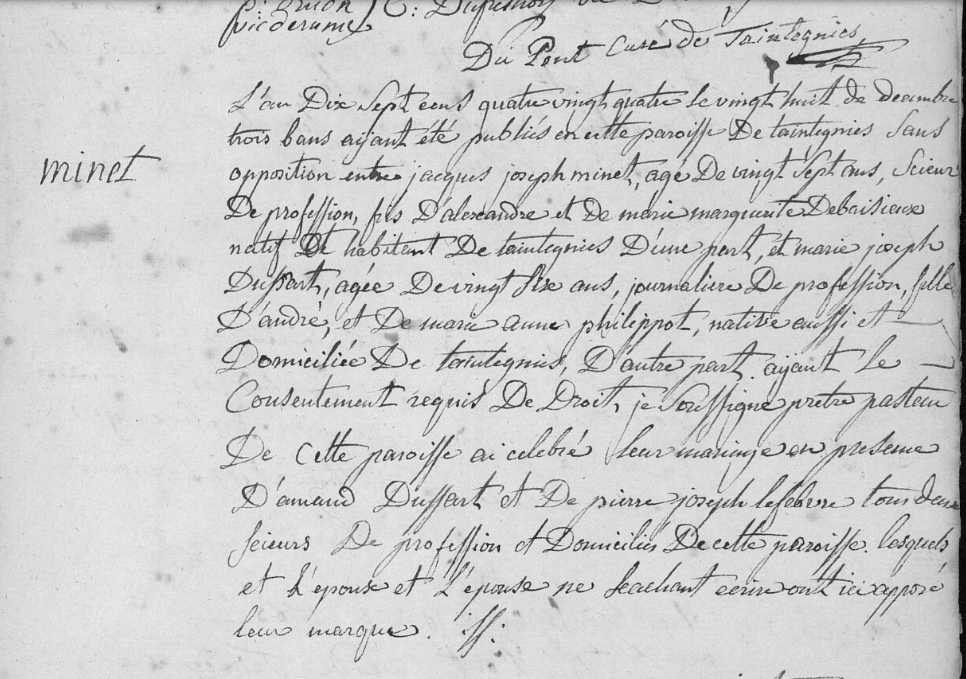 vicderume
Du Pont Curé de Taintegnies
L'an Dix Sept cens quatre vingt quatre le vingt huit de decembre
trois bans aÿant été publiés en cette paroisse De taintegnies Sans
minet
opposition entre jacques joseph minet, agé De vingt Sept ans, Scieur
De profession, fils D'alexandre et de marie marguerite Debaisieux
natif Et habitant De taintegnies D'une part, et marie joseph
Dussart, agée De vingt Six ans, journaliere De profession, fille
D'andré, et De marie anne philippot, native aussi et
Domiciliée De taintegnies, D'autre part aÿant le
Consentement requis De Droit, je Soussigné pretre pasteur
De Cette paroisse ai celebré leur mariage en presence
D'amand Dussart et De pierre joseph lefebvre tous deux
scieurs De profession et Domiciliés De cette paroisse. lesquels
et L'epouse et L'épouse ne Scachant ecrire ont ici apposé
leur marque.